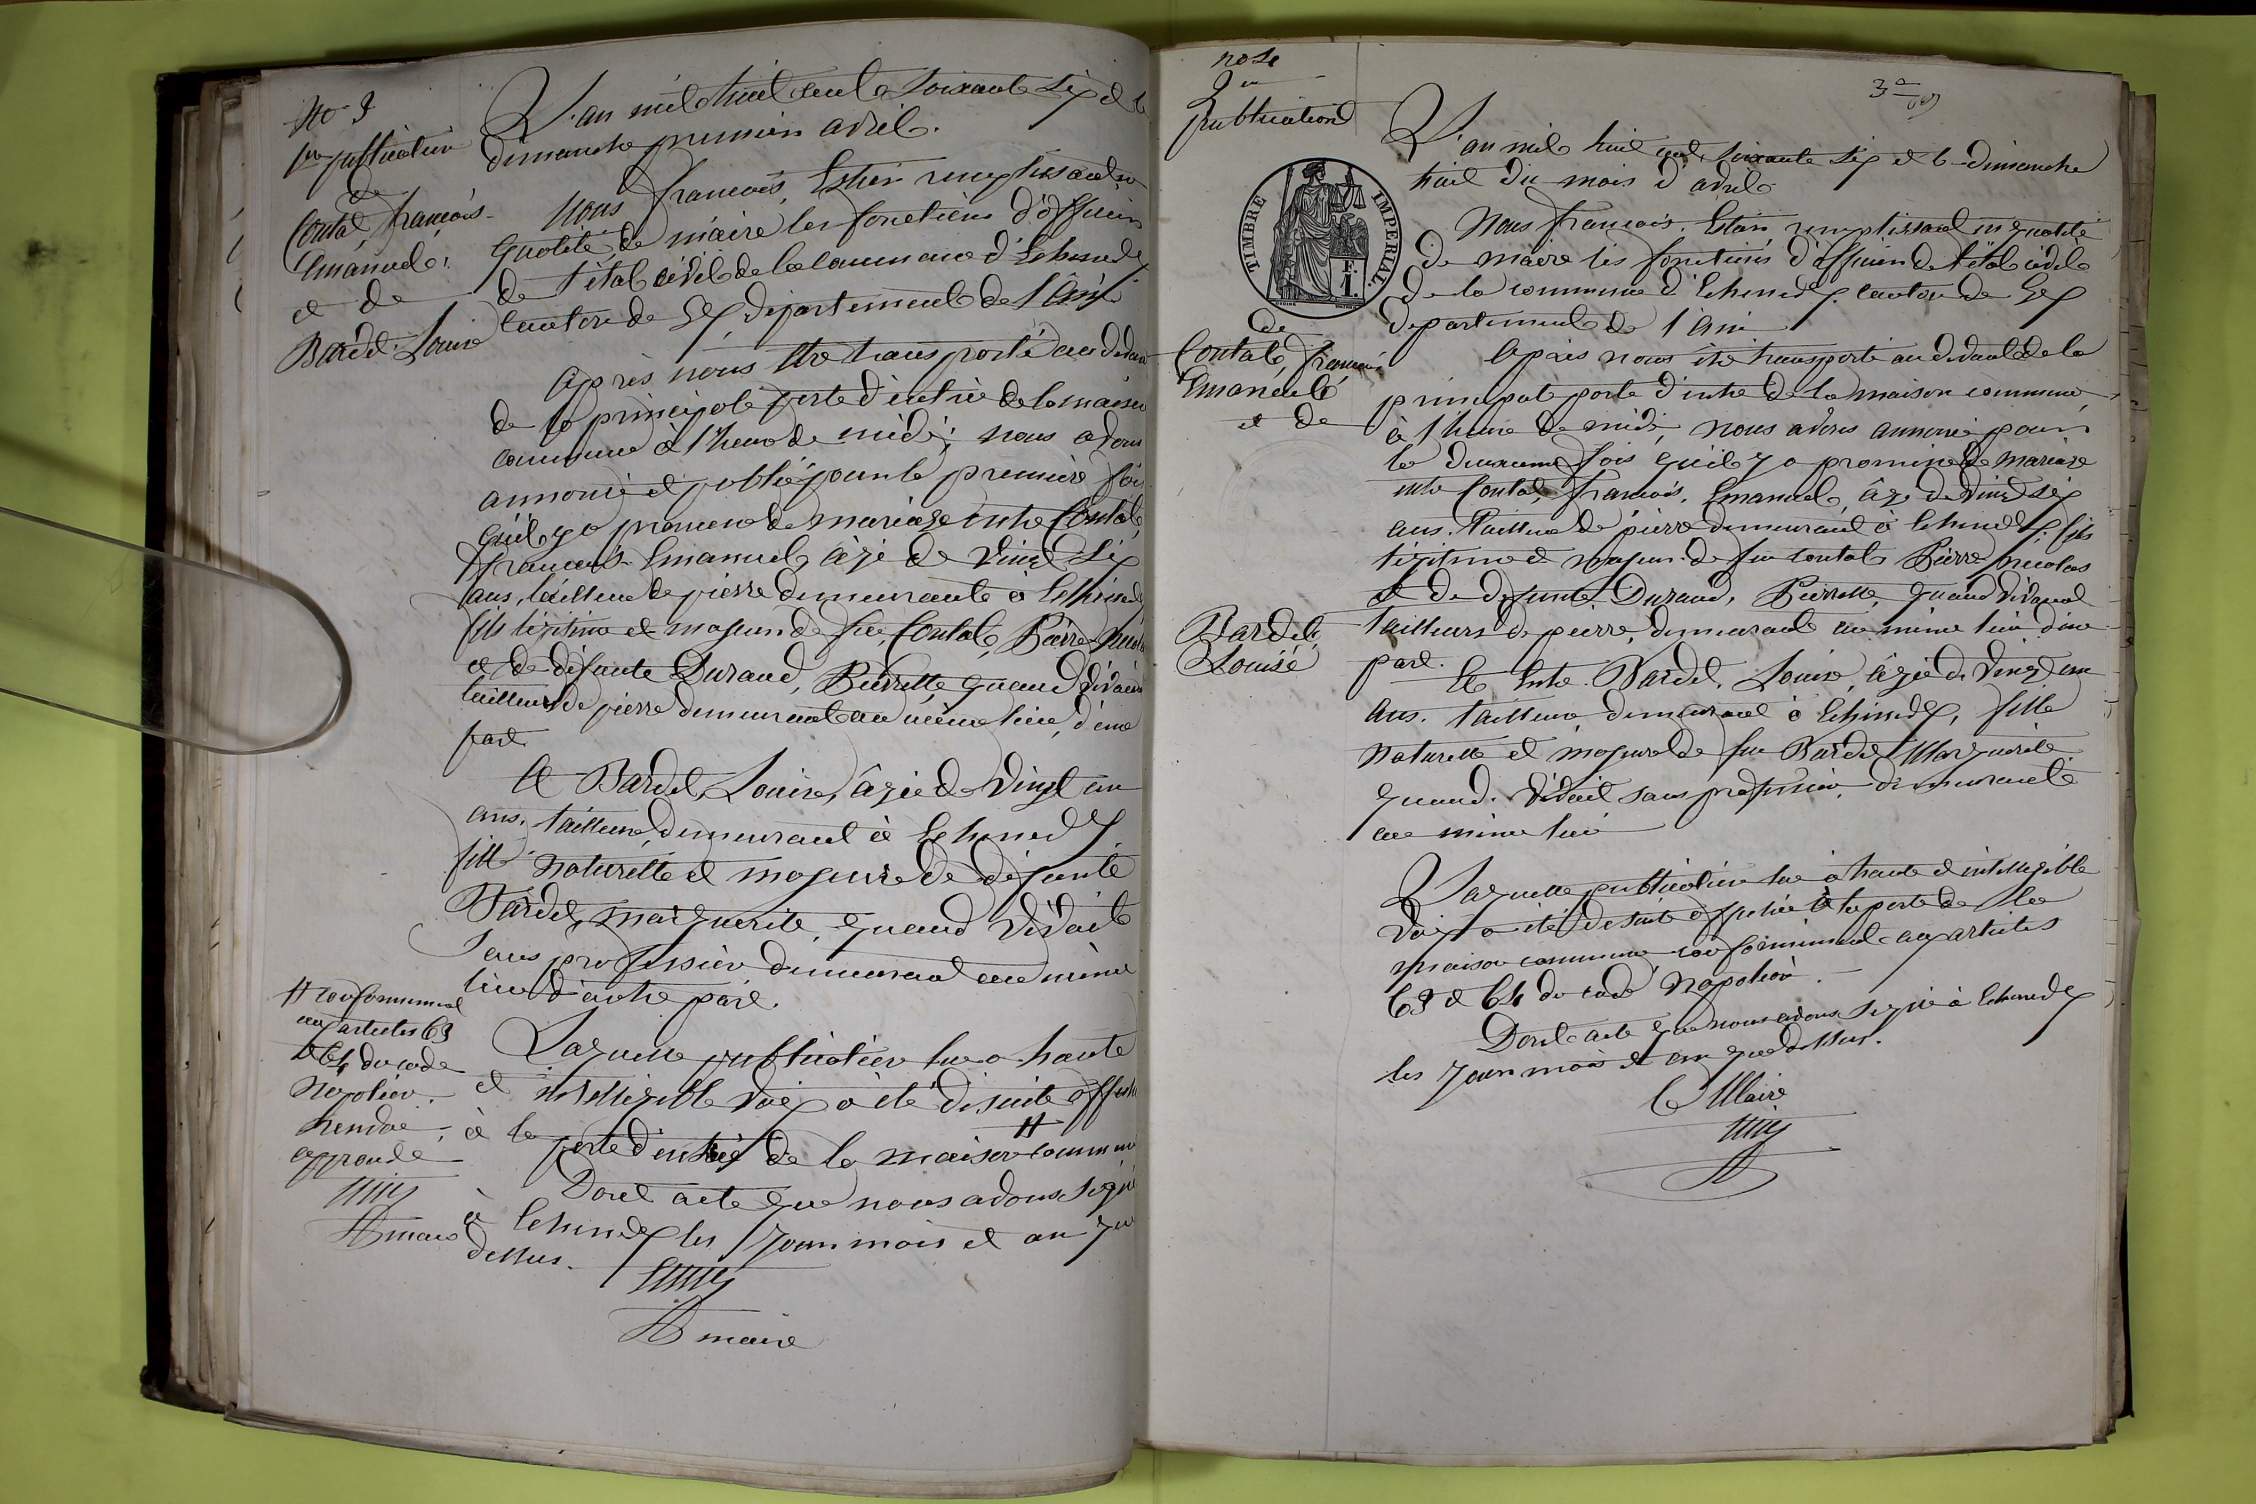 No 3
1re publication
de
Contat, françois
Emanuel
et de
Bardel Louise
L'an mil huit cent soixante six et le
dimanche premier avril.
Nous françois, Estier remplissant en
qualité de maire les fonctions d'officier
de l'état civil de la commune d'Echenevex
canton de Gex, département de l'Ain
Après nous être transporté au devant
de la principale porte d'entrée de la maison
commune à l'heure de midi; nous avons
annoncé et publié pour la première fois
qu'il y a promesse de mariage entre Contat,
françois Emanuel, âgé de vingt six
ans, tailleur de pierre demeurante à Echenevex
fils légitime et majeur de feu, Contat, Pierre Nicolas
et de défunte Durand, Pierrette, quand vivait
tailleurs de pierre demeurant au même lieu, d'une
part
Et Bardel, Louise, âgée de vingt un
ans, tailleuse, demeurant à Echenevex
fille naturelle et majeure de défunte
Bardel, marguerite, quand vivait
sans profession demeurant au même
lieu d'autre part.
Laquelle publication lue a haute
et intelligible voix a été de suite affichée
à la porte d'entrée de la maison commune #
Dont acte que nous avons signé
à Echenevex les jour mois et an que
dessus.
maire
# conformément
aux articles 63
et 64 du code
Napoléon.
renvoi
approuvé
maire
no 4
2me
publication
de
Contat, françois
Emanuel
et de
Bardel,
Louise
TIMBRE IMPÉRIAL
F.
1.
3e
L'an mil huit cent soixante six et le dimanche
huit du mois d'avril
Nous françois. Estier remplissant en qualité
de maire les fonctions d'officier de l'état civil
de la commune d'Echenevex, canton de Gex
département de l'Ain
Après nous être transporté au devant de la
principale porte d'entré de la maison commune,
à l'heure de midi, nous avons annoncé pour
la deuxieme fois qu'il y a promesse de mariage
entre Contat, françois, Emanuel, âgé de vingt six
ans. tailleur de pierre demeurant à Echenevex, fils
légitime et majeur de feu contat Pierre nicolas
et de défunte Durand, Pierrette, quand vivait
tailleurs de pierre, demeurant au même lieu d'une
part.
Et Entre Bardel, Louise, âgée de vingt un
ans. tailleuse demeurant à Echenevex, fille
naturelle et majeure de feu Bardel Marguerite
quand vivait sans profession, demeurant
au même lieu
Laquelle publication lue a haute et intelligible
voix a été de suite affichée à la porte de la
maison commune, conformément aux articles
63 et 64 du code Napoléon.
Dont acte que nous avons signé à Echenevex
les jour mois et an que dessus.
le Maire